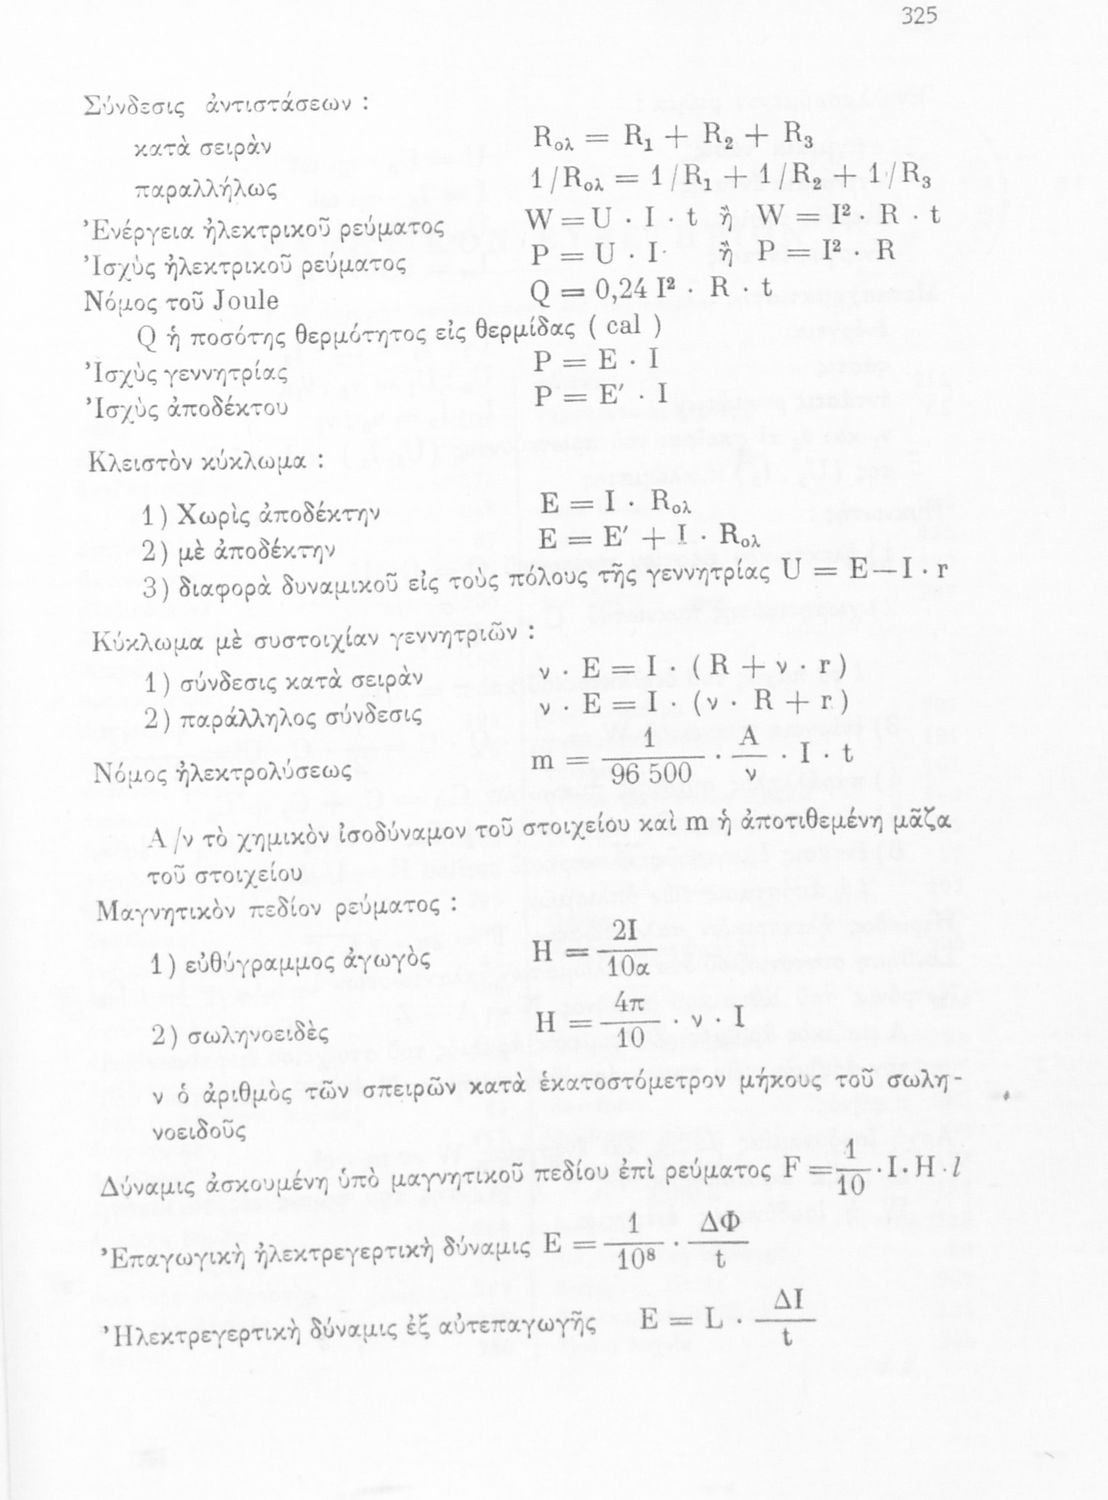 325
Σύνδεσις ἀντιστάσεων :
κατὰ σειρὰν R₀λ = R₁ + R₂ + R₃
παραλλήλως 1/R₀λ = 1/R₁ + 1/R₂ + 1/R₃
Ἐνέργεια ἠλεκτρικοῦ ρεύματος W = U · I · t ἢ W = I² · R · t
Ἰσχὺς ἠλεκτρικοῦ ρεύματος P = U · I ἢ P = I² · R
Νόμος τοῦ Joule Q = 0,24 I² · R · t
Q ἡ ποσότης θερμότητος εἰς θερμίδας ( cal )
Ἰσχὺς γεννητρίας P = E · I
Ἰσχὺς ἀποδέκτου P = E′ · I
Κλειστὸν κύκλωμα :
1) Χωρὶς ἀποδέκτην E = I · Rολ
2) μὲ ἀποδέκτην E = E′ + I · Rολ
3) διαφορὰ δυναμικοῦ εἰς τοὺς πόλους τῆς γεννητρίας U = E — I · r
Κύκλωμα μὲ συστοιχίαν γεννητριῶν :
1) σύνδεσις κατὰ σειρὰν ν · E = I · ( R + ν · r )
2) παράλληλος σύνδεσις ν · E = I · (ν · R + r )
Νόμος ἠλεκτρολύσεως m = 1/96 500 · A/ν · I · t
A/ν τὸ χημικὸν ἰσοδύναμον τοῦ στοιχείου καὶ m ἡ ἀποτιθεμένη μᾶζα
τοῦ στοιχείου
Μαγνητικὸν πεδίον ρεύματος :
1) εὐθύγραμμος ἀγωγὸς H = 2I/10α
2) σωληνοειδὲς H = 4π/10 · ν · I
ν ὁ ἀριθμὸς τῶν σπειρῶν κατὰ ἑκατοστόμετρον μήκους τοῦ σωλη-
νοειδοῦς
Δύναμις ἀσκουμένη ὑπὸ μαγνητικοῦ πεδίου ἐπὶ ρεύματος F = 1/10 · I · H · l
Ἐπαγωγικὴ ἠλεκτρεγερτικὴ δύναμις E = 1/10⁸ · ΔΦ/t
Ἠλεκτρεγερτικὴ δύναμις ἐξ αὐτεπαγωγῆς E = L · ΔI/t